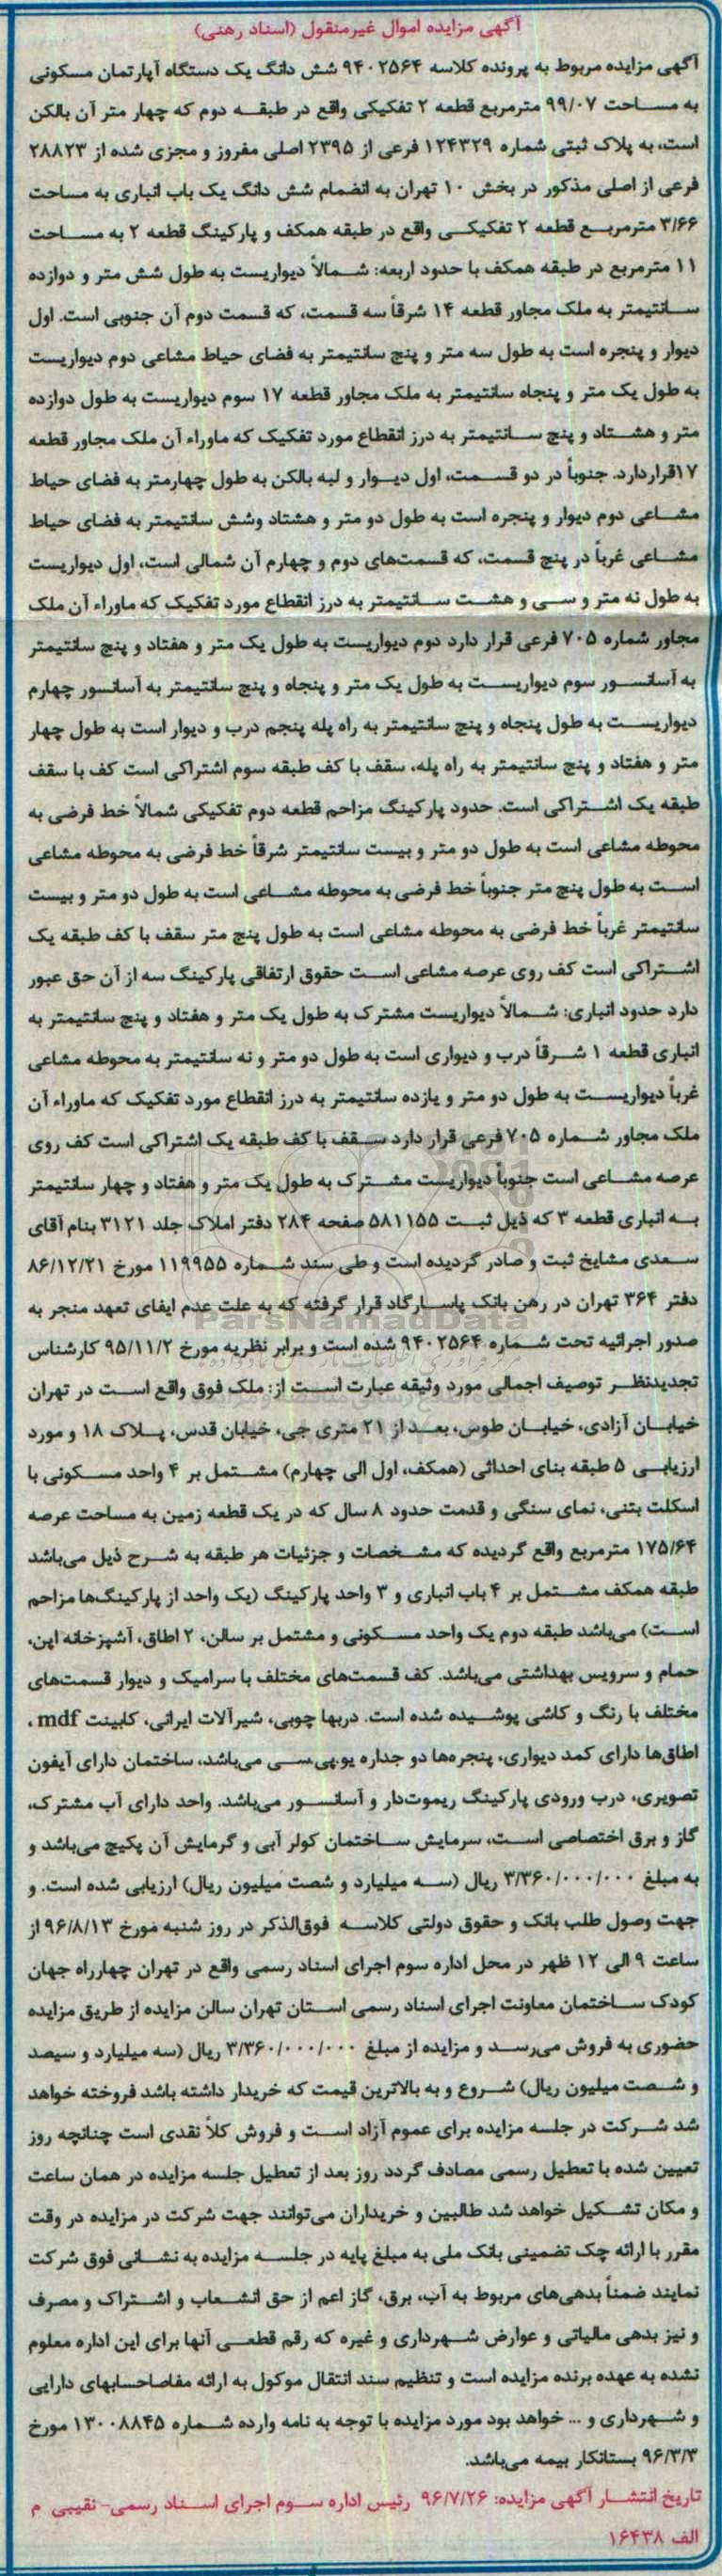 آگهی مزایده اموال غیرمنقول (اسناد رهنی)
آگهی مزایده مربوط به پرونده کلاسه ۹۴۰۲۵۶۴ شش دانگ یک دستگاه آپارتمان مسکونی
به مساحت ۹۹/۰۷ مترمربع قطعه ۲ تفکیکی واقع در طبقه دوم که چهار متر آن بالکن
است، به پلاک ثبتی شماره ۱۲۴۳۲۹ فرعی از ۲۳۹۵ اصلی مفروز و مجزی شده از ۲۸۸۲۳
فرعی از اصلی مذکور در بخش ۱۰ تهران به انضمام شش دانگ یک باب انباری به مساحت
۳/۶۶ مترمربع قطعه ۲ تفکیکی واقع در طبقه همکف و پارکینگ قطعه ۲ به مساحت
۱۱ مترمربع در طبقه همکف با حدود اربعه: شمالاً دیواریست به طول شش متر و دوازده
سانتیمتر به ملک مجاور قطعه ۱۴ شرقاً سه قسمت، که قسمت دوم آن جنوبی است. اول
دیوار و پنجره است به طول سه متر و پنج سانتیمتر به فضای حیاط مشاعی دوم دیواریست
به طول یک متر و پنجاه سانتیمتر به ملک مجاور قطعه ۱۷ سوم دیواریست به طول دوازده
متر و هشتاد و پنج سانتیمتر به درز انقطاع مورد تفکیک که ماوراء آن ملک مجاور قطعه
۱۷قراردارد. جنوباً در دو قسمت، اول دیوار و لبه بالکن به طول چهارمتر به فضای حیاط
مشاعی دوم دیوار و پنجره است به طول دو متر و هشتاد وشش سانتیمتر به فضای حیاط
مشاعی غرباً در پنج قسمت، که قسمت‌های دوم و چهارم آن شمالی است، اول دیواریست
به طول نه متر و سی و هشت سانتیمتر به درز انقطاع مورد تفکیک که ماوراء آن ملک
مجاور شماره ۷۰۵ فرعی قرار دارد دوم دیواریست به طول یک متر و هفتاد و پنج سانتیمتر
به آسانسور سوم دیواریست به طول یک متر و پنجاه و پنج سانتیمتر به آسانسور چهارم
دیواریست به طول پنجاه و پنج سانتیمتر به راه پله پنجم درب و دیوار است به طول چهار
متر و هفتاد و پنج سانتیمتر به راه پله، سقف با کف طبقه سوم اشتراکی است کف با سقف
طبقه یک اشتراکی است. حدود پارکینگ مزاحم قطعه دوم تفکیکی شمالاً خط فرضی به
محوطه مشاعی است به طول دو متر و بیست سانتیمتر شرقاً خط فرضی به محوطه مشاعی
است به طول پنج متر جنوباً خط فرضی به محوطه مشاعی است به طول دو متر و بیست
سانتیمتر غرباً خط فرضی به محوطه مشاعی است به طول پنج متر سقف با کف طبقه یک
اشتراکی است کف روی عرصه مشاعی است حقوق ارتفاقی پارکینگ سه از آن حق عبور
دارد حدود انباری: شمالاً دیواریست مشترک به طول یک متر و هفتاد و پنج سانتیمتر به
انباری قطعه ۱ شرقاً درب و دیواری است به طول دو متر و نه سانتیمتر به محوطه مشاعی
غرباً دیواریست به طول دو متر و یازده سانتیمتر به درز انقطاع مورد تفکیک که ماوراء آن
ملک مجاور شماره ۷۰۵ فرعی قرار دارد سقف با کف طبقه یک اشتراکی است کف روی
عرصه مشاعی است جنوباً دیواریست مشترک به طول یک متر و هفتاد و چهار سانتیمتر
به انباری قطعه ۳ که ذیل ثبت ۵۸۱۱۵۵ صفحه ۲۸۴ دفتر املاک جلد ۳۱۲۱ بنام آقای
سعدی مشایخ ثبت و صادر گردیده است و طی سند شماره ۱۱۹۹۵۵ مورخ ۸۶/۱۲/۲۱
دفتر ۳۶۴ تهران در رهن بانک پاسارگاد قرار گرفته که به علت عدم ایفای تعهد منجر به
ParsNamadData
صدور اجرائیه تحت شماره ۹۴۰۲۵۶۴ شده است و برابر نظریه مورخ ۹۵/۱۱/۲ کارشناس
تجدیدنظر توصیف اجمالی مورد وثیقه عبارت است از: ملک فوق واقع است در تهران
خیابان آزادی، خیابان طوس، بعد از ۲۱ متری جی، خیابان قدس، پلاک ۱۸ و مورد
ارزیابی ۵ طبقه بنای احداثی (همکف، اول الی چهارم) مشتمل بر ۴ واحد مسکونی با
اسکلت بتنی، نمای سنگی و قدمت حدود ۸ سال که در یک قطعه زمین به مساحت عرصه
۱۷۵/۶۴ مترمربع واقع گردیده که مشخصات و جزئیات هر طبقه به شرح ذیل می‌باشد
طبقه همکف مشتمل بر ۴ باب انباری و ۳ واحد پارکینگ (یک واحد از پارکینگ‌ها مزاحم
است) می‌باشد طبقه دوم یک واحد مسکونی و مشتمل بر سالن، ۲ اطاق، آشپزخانه اپن،
حمام و سرویس بهداشتی می‌باشد. کف قسمت‌های مختلف با سرامیک و دیوار قسمت‌های
مختلف با رنگ و کاشی پوشیده شده است. دربها چوبی، شیرآلات ایرانی، کابینت mdf،
اطاق‌ها دارای کمد دیواری، پنجره‌ها دو جداره یو.پی.سی می‌باشد، ساختمان دارای آیفون
تصویری، درب ورودی پارکینگ ریموت‌دار و آسانسور می‌باشد. واحد دارای آب مشترک،
گاز و برق اختصاصی است، سرمایش ساختمان کولر آبی و گرمایش آن پکیج می‌باشد و
به مبلغ ۳/۳۶۰/۰۰۰/۰۰۰ ریال (سه میلیارد و شصت میلیون ریال) ارزیابی شده است. و
جهت وصول طلب بانک و حقوق دولتی کلاسه فوق‌الذکر در روز شنبه مورخ ۹۶/۸/۱۳ از
ساعت ۹ الی ۱۲ ظهر در محل اداره سوم اجرای اسناد رسمی واقع در تهران چهارراه جهان
کودک ساختمان معاونت اجرای اسناد رسمی استان تهران سالن مزایده از طریق مزایده
حضوری به فروش می‌رسد و مزایده از مبلغ ۳/۳۶۰/۰۰۰/۰۰۰ ریال (سه میلیارد و سیصد
و شصت میلیون ریال) شروع و به بالاترین قیمت که خریدار داشته باشد فروخته خواهد
شد شرکت در جلسه مزایده برای عموم آزاد است و فروش کلاً نقدی است چنانچه روز
تعیین شده با تعطیل رسمی مصادف گردد روز بعد از تعطیل جلسه مزایده در همان ساعت
و مکان تشکیل خواهد شد طالبین و خریداران می‌توانند جهت شرکت در مزایده در وقت
مقرر با ارائه چک تضمینی بانک ملی به مبلغ پایه در جلسه مزایده به نشانی فوق شرکت
نمایند ضمناً بدهی‌های مربوط به آب، برق، گاز اعم از حق انشعاب و اشتراک و مصرف
و نیز بدهی مالیاتی و عوارض شهرداری و غیره که رقم قطعی آنها برای این اداره معلوم
نشده به عهده برنده مزایده است و تنظیم سند انتقال موکول به ارائه مفاصاحسابهای دارایی
و شهرداری و ... خواهد بود مورد مزایده با توجه به نامه وارده شماره ۱۳۰۰۸۸۴۵ مورخ
۹۶/۳/۳ بستانکار بیمه می‌باشد.
تاریخ انتشار آگهی مزایده: ۹۶/۷/۲۶ رئیس اداره سوم اجرای اسناد رسمی- نقیبی م
الف ۱۶۴۳۸